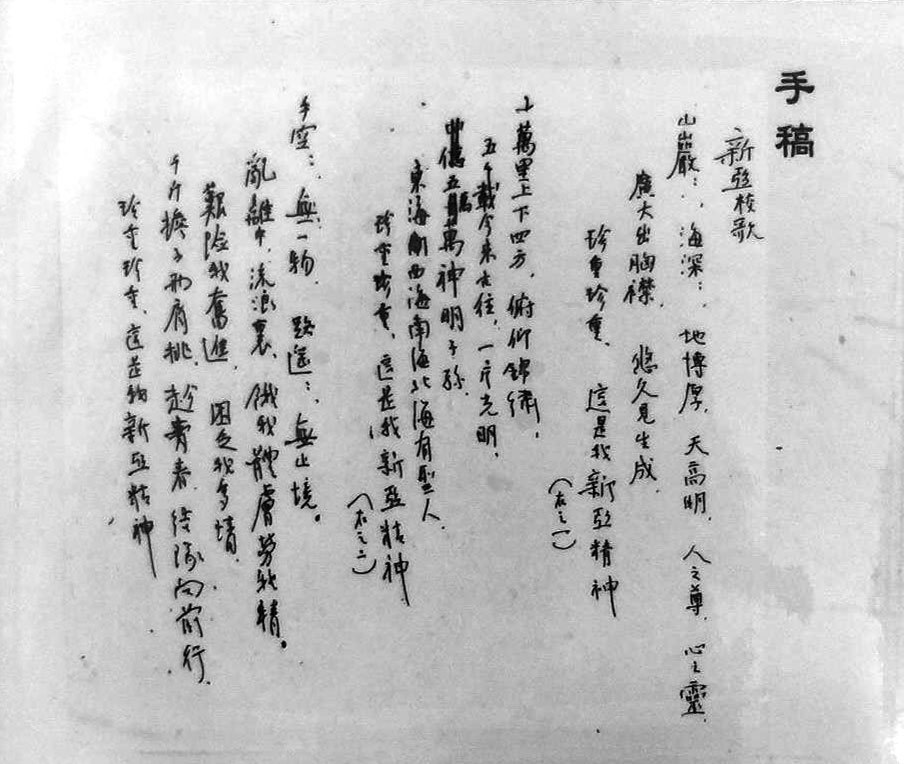 手稿
新亞校歌
山巖：，海深：，地博厚，天高明，人之尊，心之靈，
廣大出胸襟，悠久見生成，
珍重珍重，這是我新亞精神
（右之一）
十萬里上下四方，俯仰錦繡，
五千載今來古往，一片光明，
億五萬神明子孫，
東海西海南海北海有聖人，
珍重珍重，這是我新亞精神
（右之二）
手空：，無一物，路遙：，無止境。
亂離中，流浪裏，餓我體膚勞我精。
艱險我奮進，困乏我多情，
千斤擔子兩肩挑，趁青春，結隊向前行，
珍重珍重，這是我新亞精神